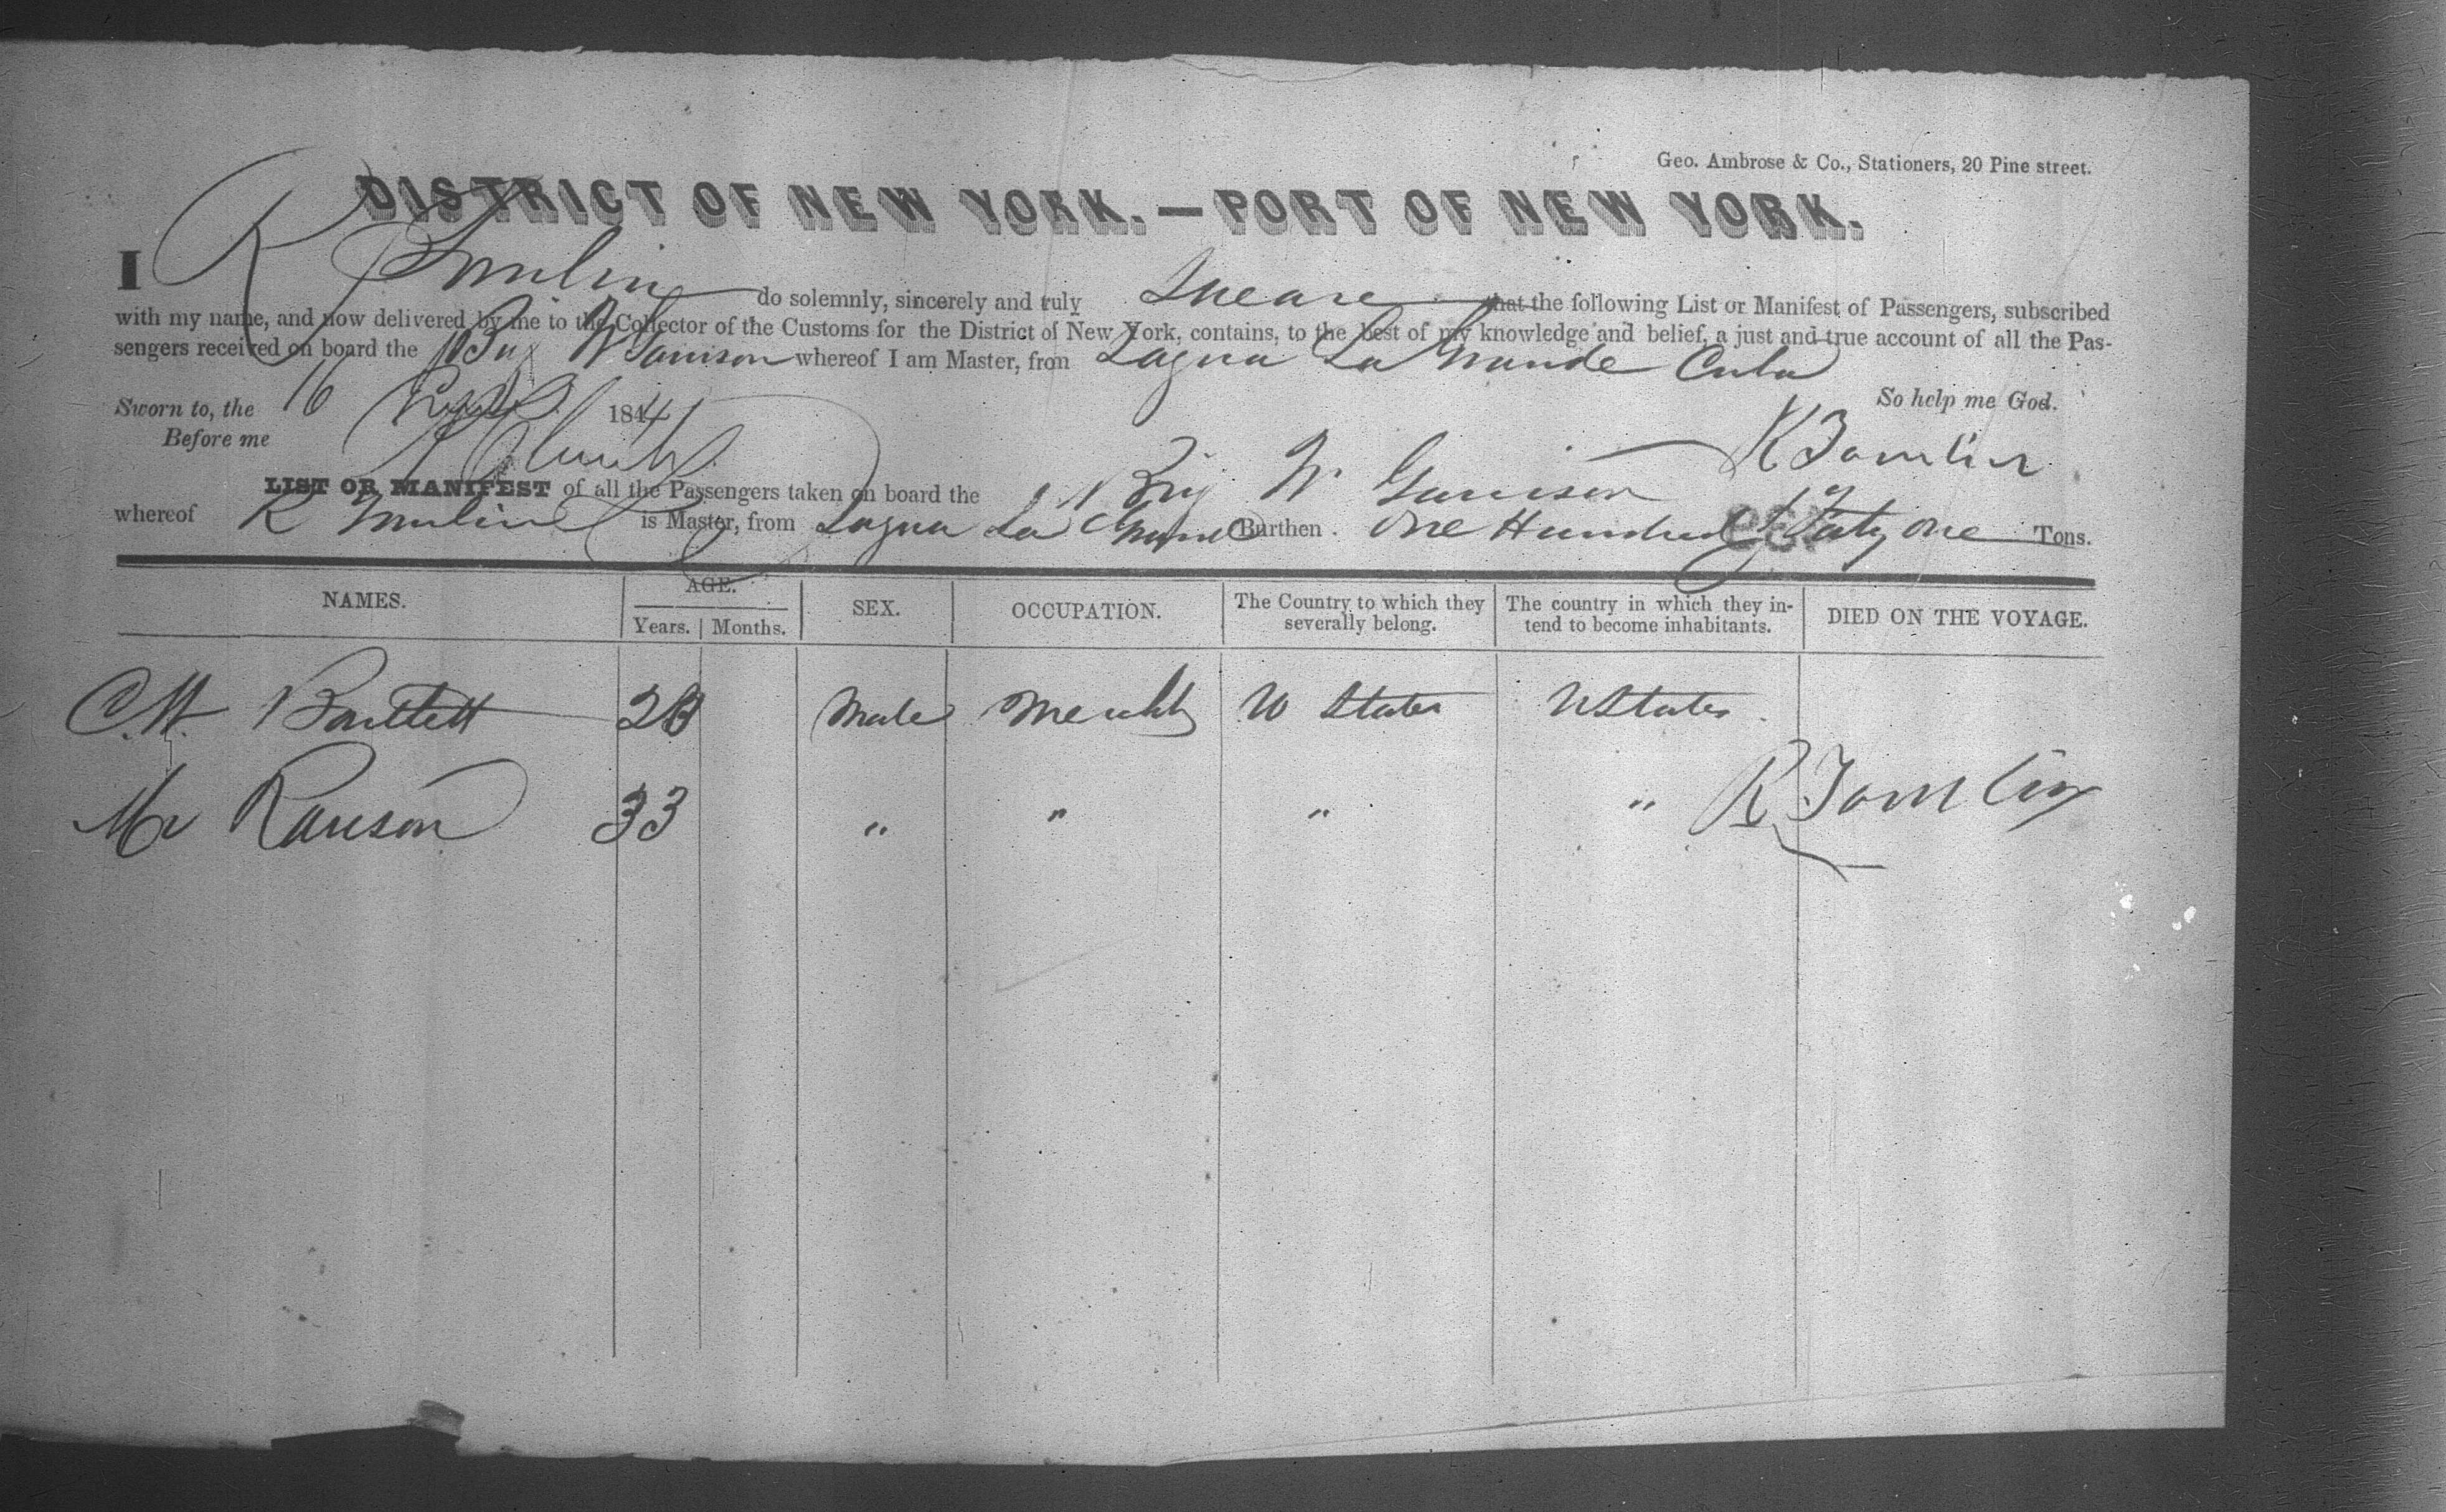 Geo. Ambrose & Co., Stationers, 20 Pine street.
DISTRICT OF NEW YORK.—PORT OF NEW YORK.
I R Tomlin do solemnly, sincerely and truly Sweare that the following List or Manifest of Passengers, subscribed
with my name, and now delivered by me to the Collector of the Customs for the District of New York, contains, to the best of my knowledge and belief, a just and true account of all the Pas-
sengers received on board the Brig W Garrison whereof I am Master, from Lagua La Grande Cuba
Sworn to, the 16 1844 So help me God.
Before me R Tomlin
LIST OR MANIFEST of all the Passengers taken on board the Brig W Garrison
whereof R Tomlin is Master, from Lagua La Grande Burthen One Hundred & one Tons.
NAMES. AGE. SEX. OCCUPATION. The Country to which they severally belong. The country in which they in- tend to become inhabitants. DIED ON THE VOYAGE.
Years. Months.
C.M. Bartlett 28 Male Mercht U States U States
Mr Ranson 33 " " " " R Tomlin